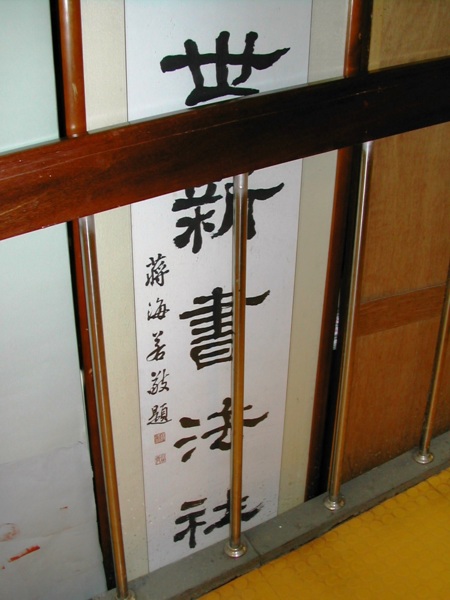 世新書法社
蔣海若敬題